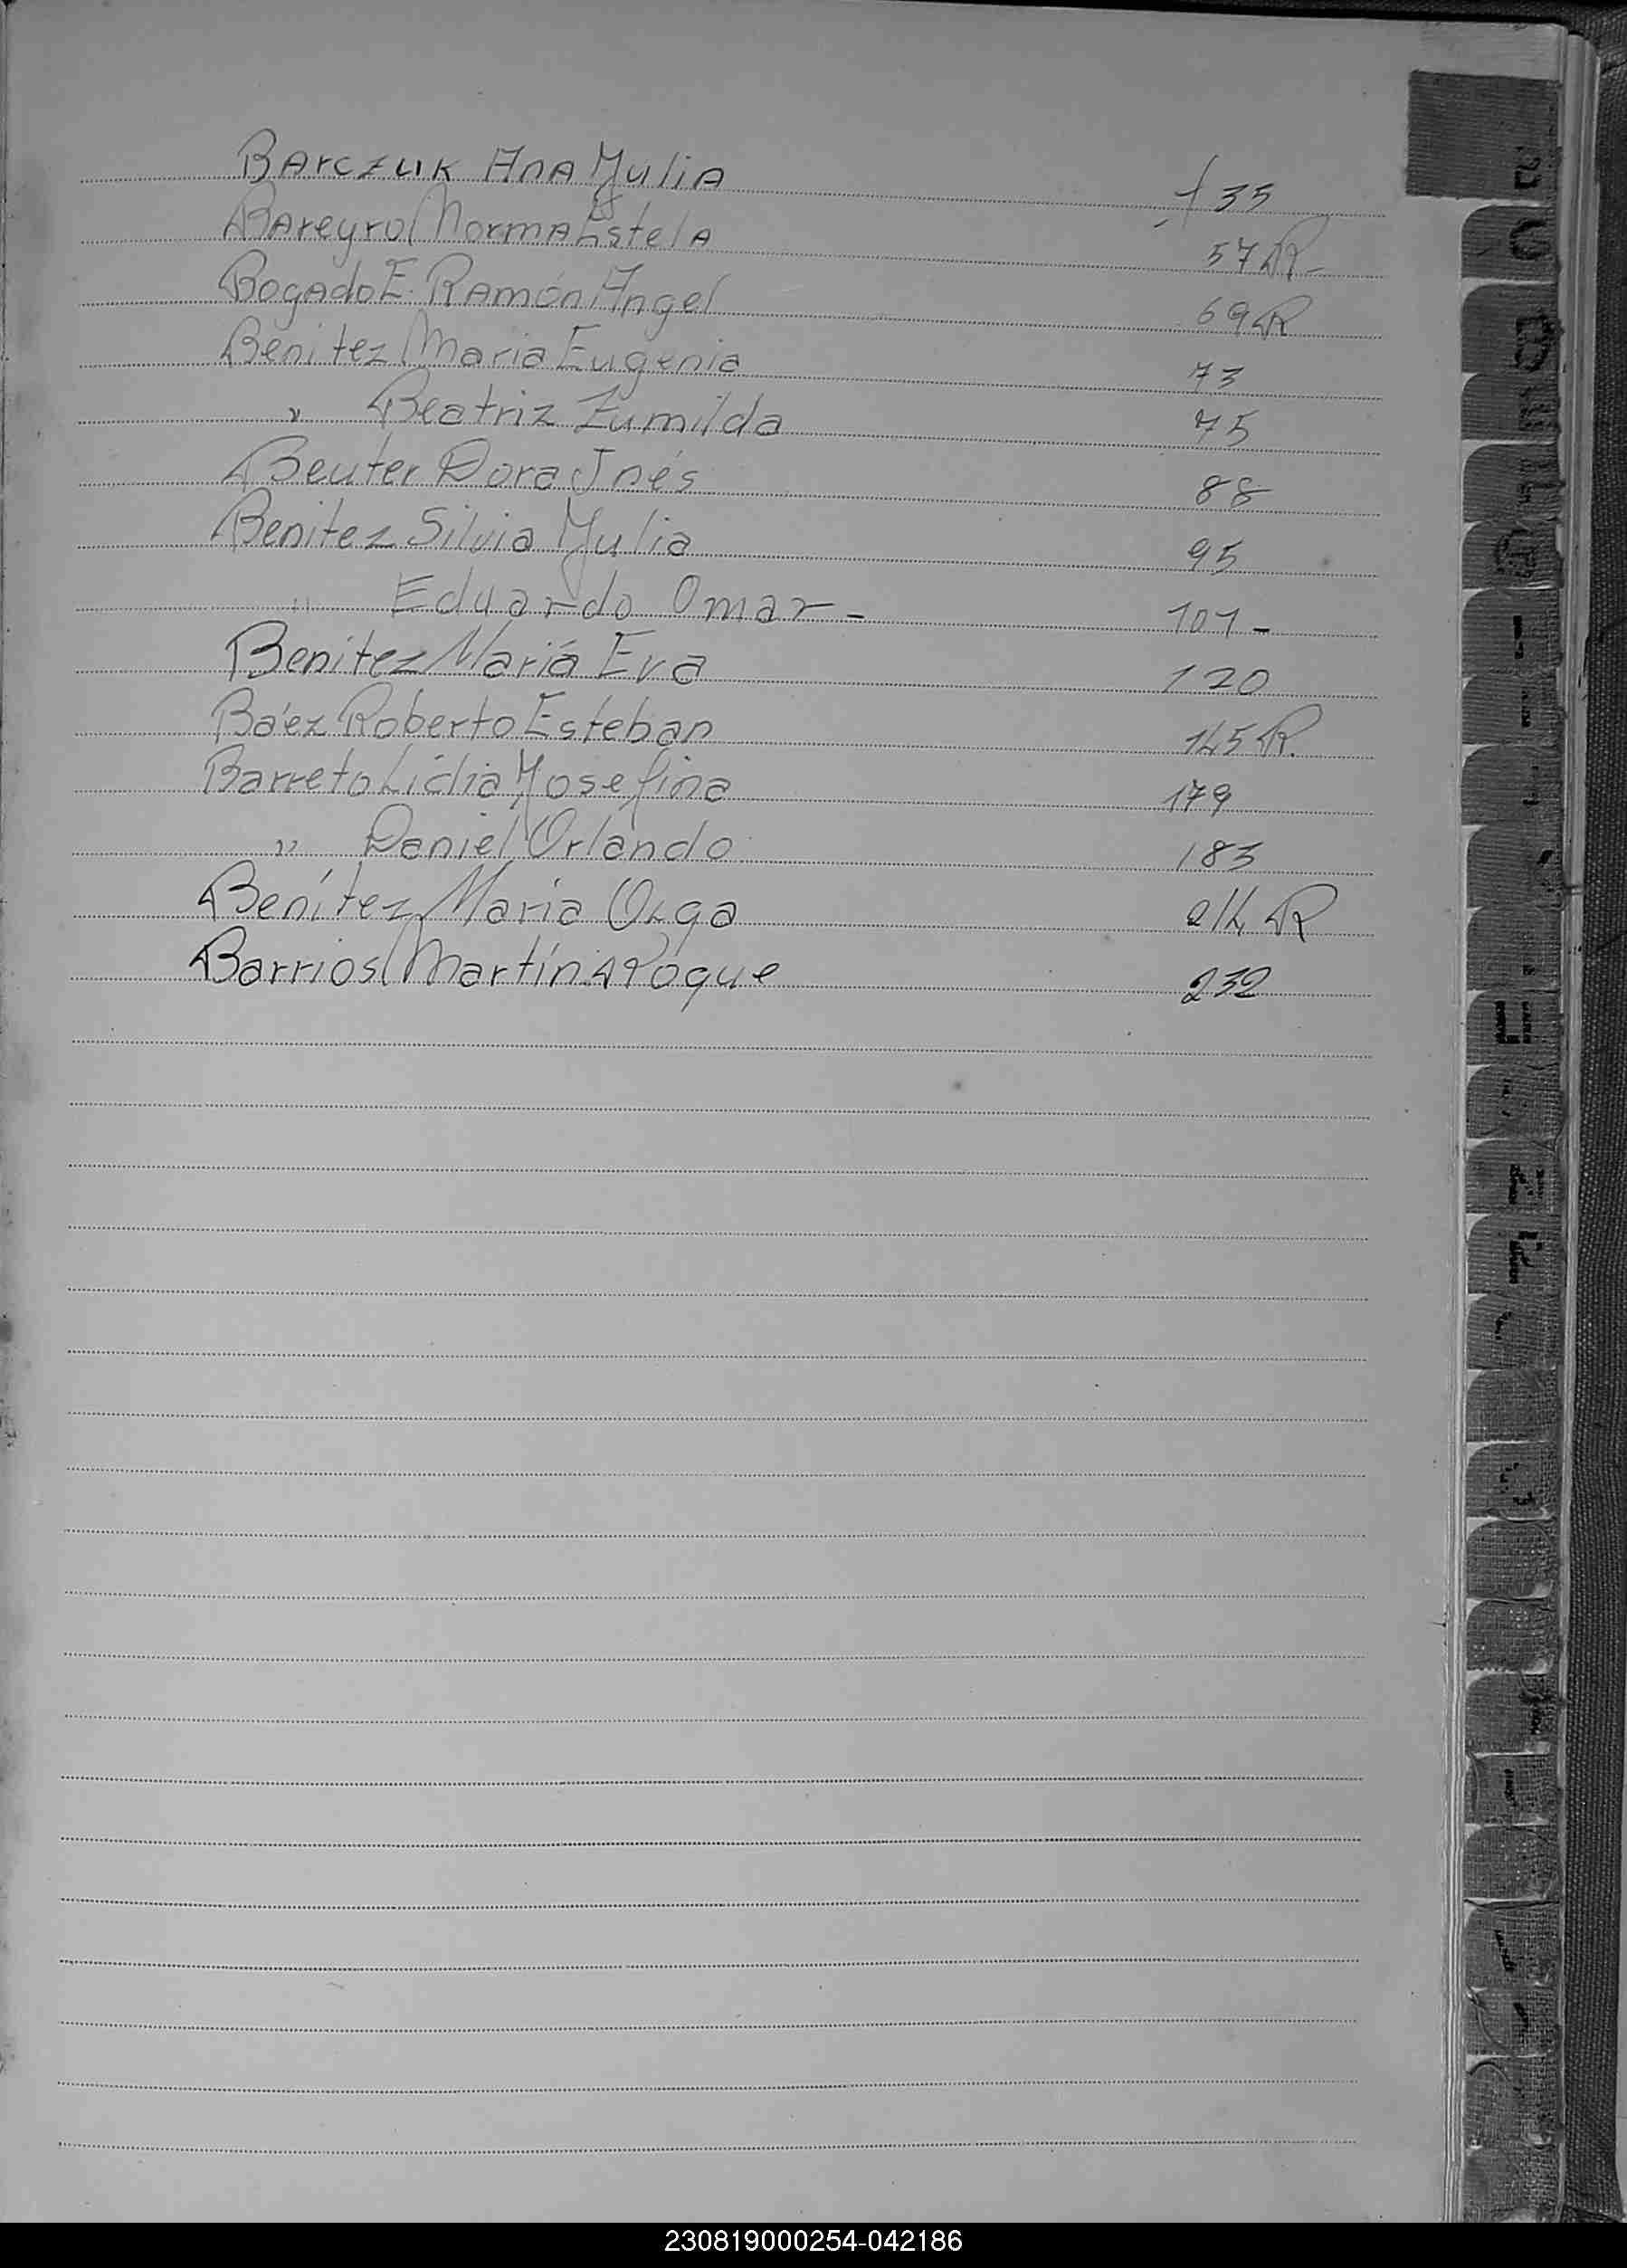 Barczuk Ana Julia f 35
Bareyro Norma Estela 57 R-
Bogado E. Ramón Angel 69 R
Benitez Maria Eugenia 73
" Beatriz Zumilda 75
Beuter Dora Inés 88
Benitez Silvia Julia 95
" Eduardo Omar - 101 -
Benitez Maria Eva 120
Báez Roberto Esteban 145 R.
Barreto Lidia Josefina 179
" Daniel Orlando 183
Benítez Maria Olga 214 R
Barrios Martín Roque 232
230819000254-042186